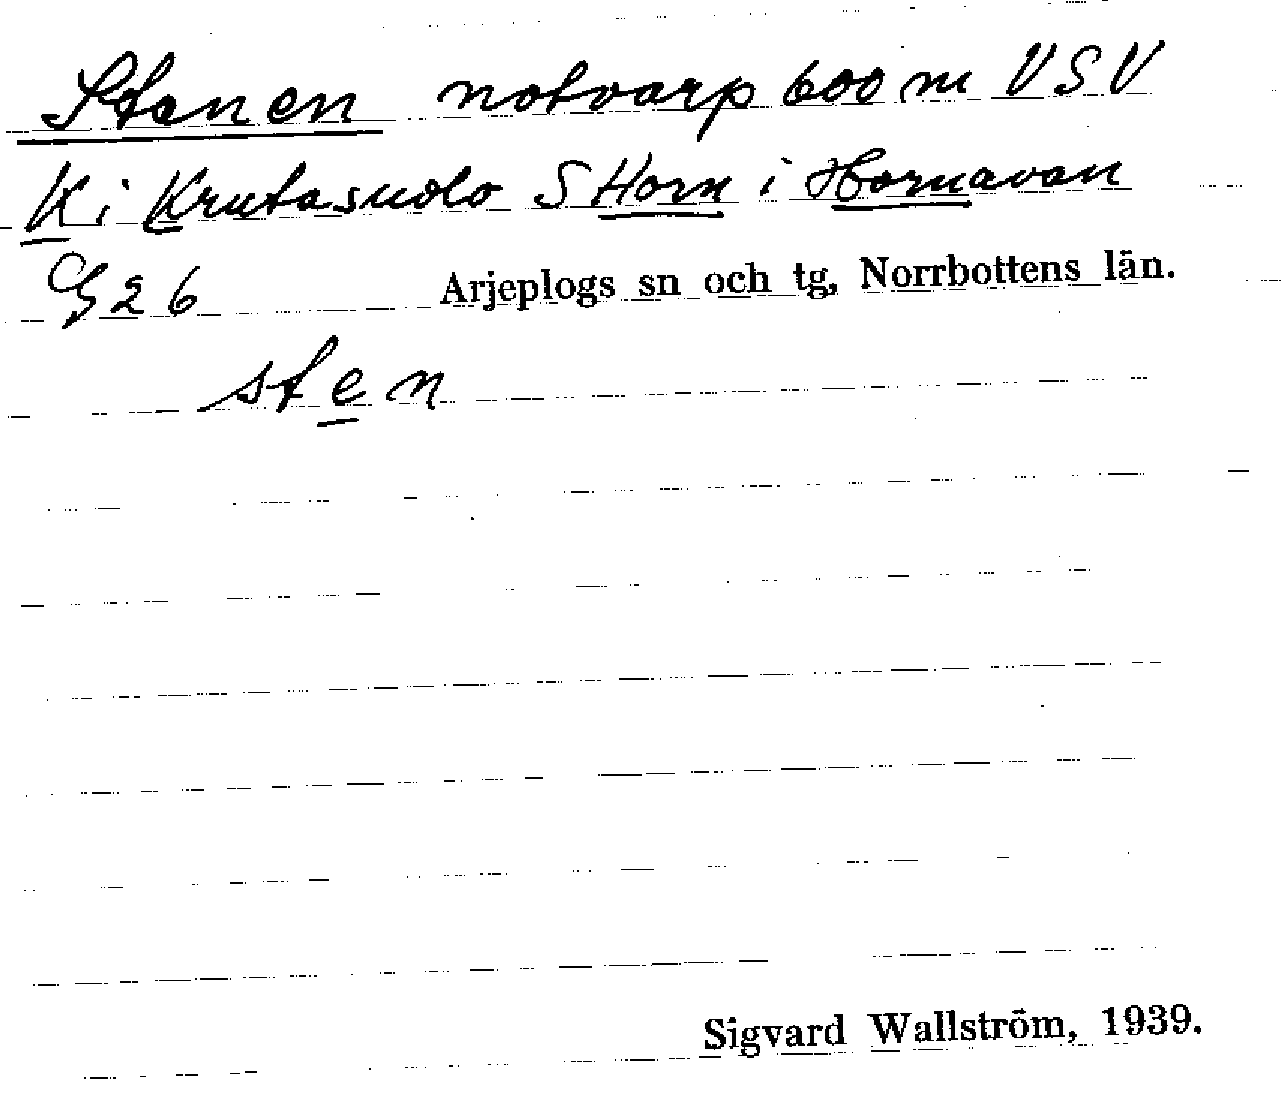 Stenen notvarp 600 m VSV
K i Krutasuolo S Horn i Hornavan
G 26 Arjeplogs sn och tg, Norrbottens län.
sten
Sigvard Wallström, 1939.